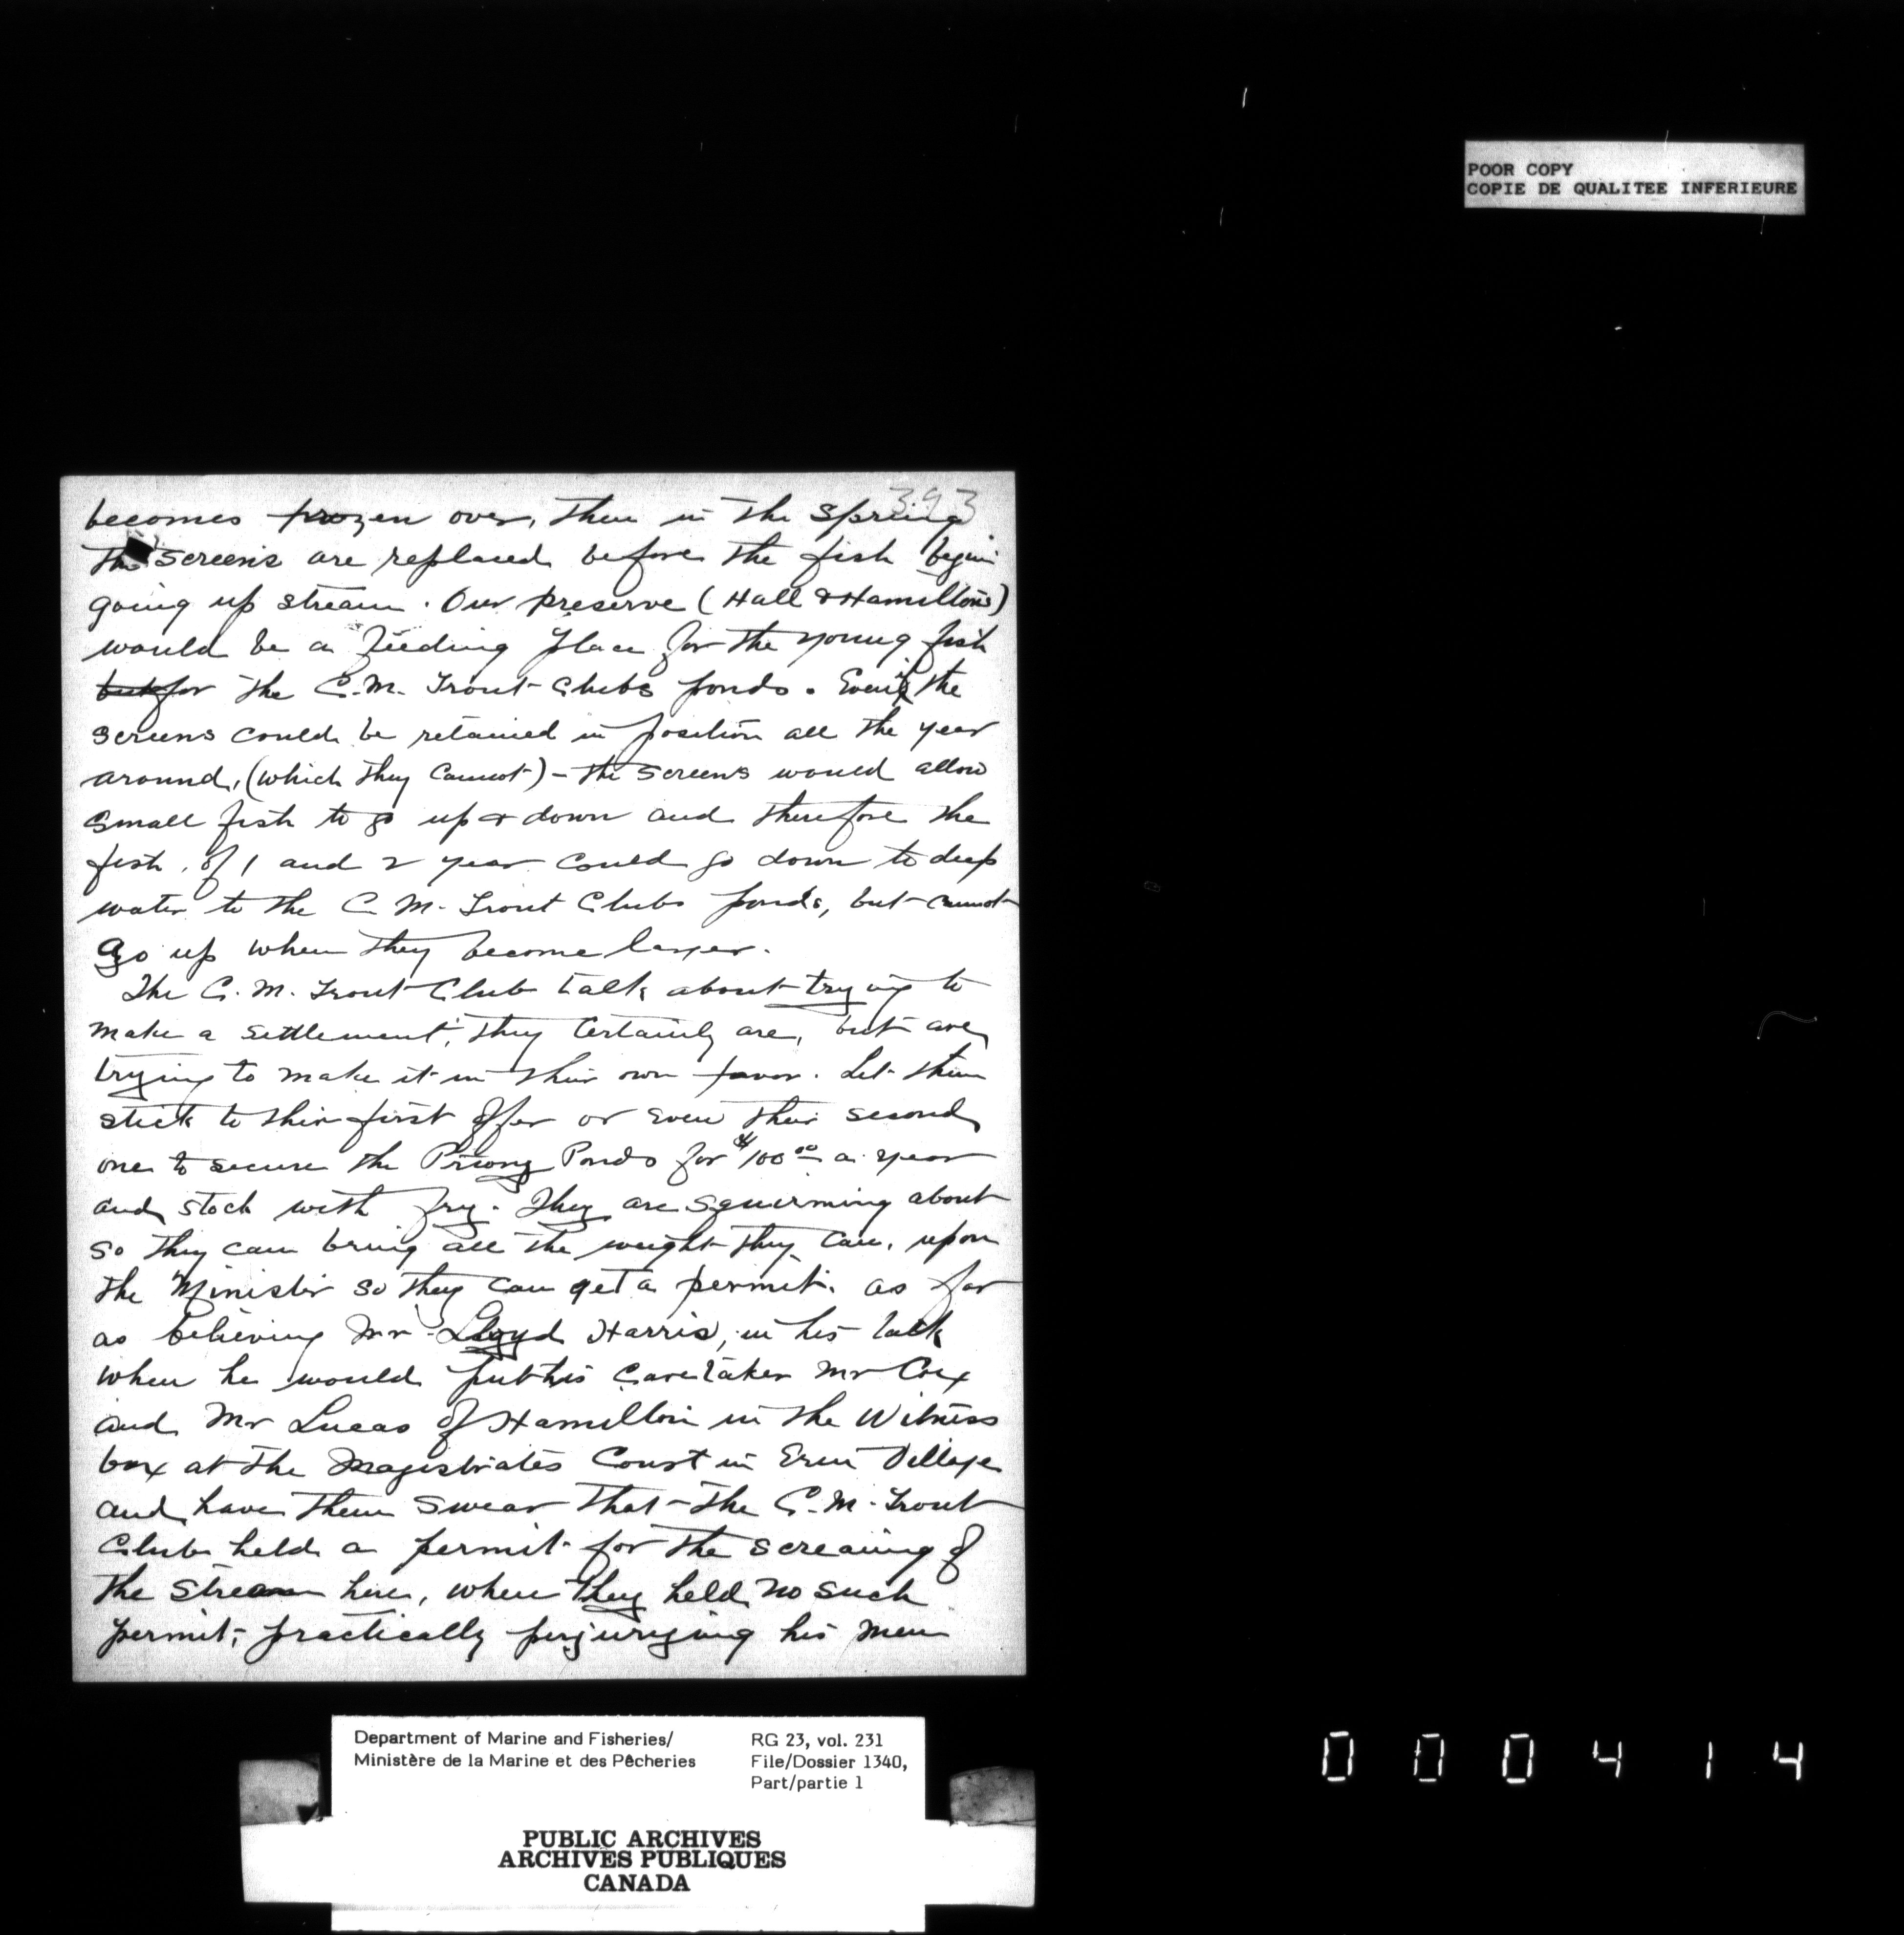 POOR COPY
COPIE DE QUALITEE INFERIEURE
393
becomes frozen over, then in the spring
the screens are replaced before the fish begin
going up stream. Our preserve (Hall & Hamiltons)
would be a feeding place for the young fish
but for the C.M. Trout Clubs ponds. Even if the
screens could be retained in position all the year
around, (which they cannot) - the screens would allow
small fish to go up & down and therefore the
fish, of 1 and 2 year could go down to deep
water to the C.M. Trout Clubs ponds, but cannot
go up when they become larger.
The C.M. Trout Club talk about trying to
make a settlement, they certainly are, but are
trying to make it in their own favor. Let them
stick to their first offer or even their second
one to secure the Ponds for $100.00 a year
and stock with fry. They are squirming about
so they can bring all the weight they can, upon
the Minister so they can get a permit. as far
as believing Mr Lloyd Harris, in his talk
when he would put his Caretaker Mr Cox
and Mr Lucas of Hamilton in the Witness
box at the Magistrates Court in Erin Village
and have them swear that the C.M. Trout
Club held a permit for the screaning of
the stream here, when they held no such
permit, practically perjurying his men
Department of Marine and Fisheries/
Ministère de la Marine et des Pêcheries
RG 23, vol. 231
File/Dossier 1340,
Part/partie 1
PUBLIC ARCHIVES
ARCHIVES PUBLIQUES
CANADA
000414